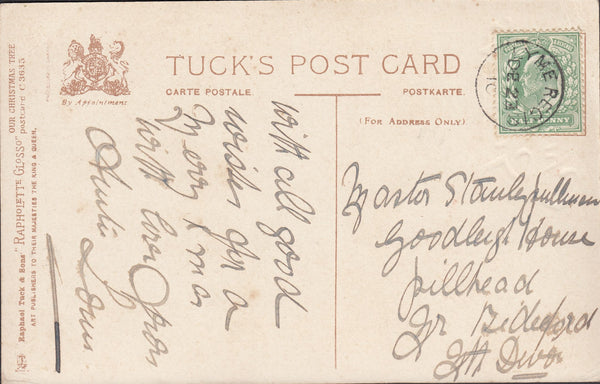 TUCK'S POST CARD
By Appointment
CARTE POSTALE.
POSTKARTE.
(FOR ADDRESS ONLY).
OUR CHRISTMAS TREE
Raphael Tuck & Sons' "RAPHOLETTE GLOSSO" postcard C 3635
ART PUBLISHERS TO THEIR MAJESTIES THE KING & QUEEN.
LYME REGIS
DE 23
10
HALFPENNY
with all good
wishes for a
Merry Xmas
with love from
Auntie
Master Stanley Pullman
Goodleigh House
Pillhead
Nr Bideford
Nth Devon